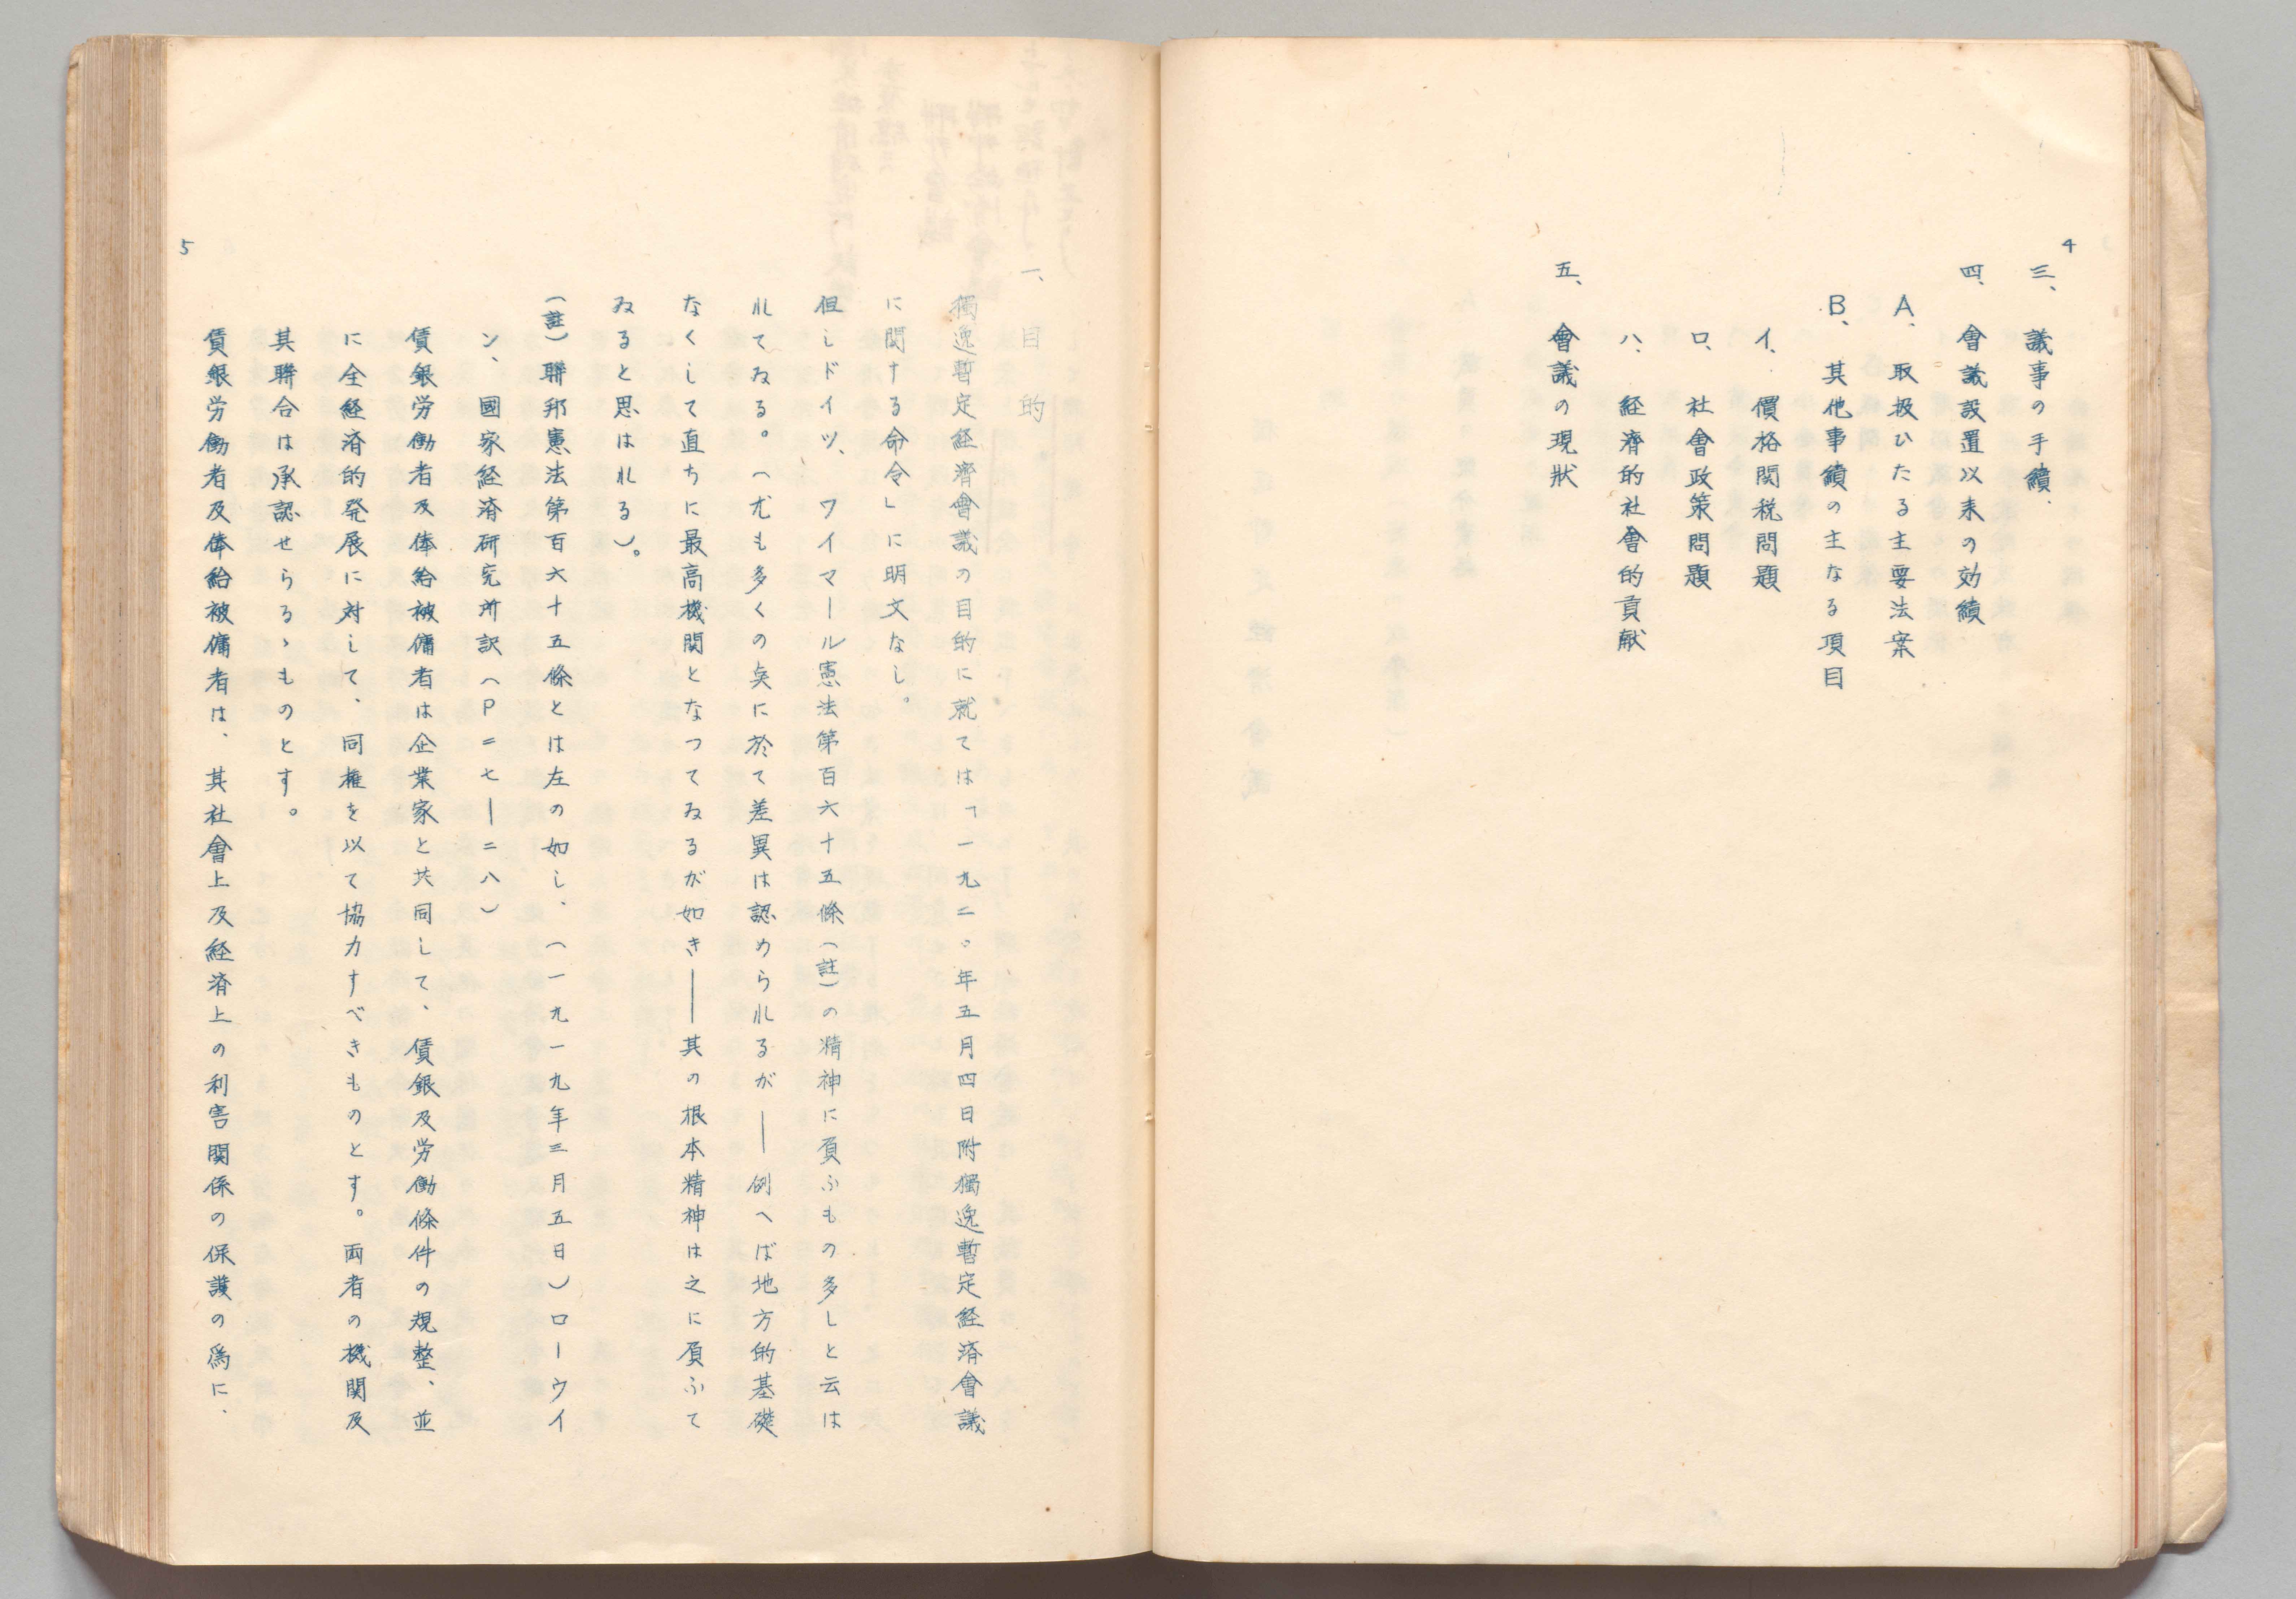 4
三、議事の手續、
四、會議設置以来の効績
A、取扱ひたる主要法案
B、其他事績の主なる項目
イ、價格関税問題
ロ、社會政策問題
ハ、経濟的社會的貢献
五、會議の現狀
一、目的
獨逸暫定経濟會議の目的に就ては「一九二〇年五月四日附獨逸暫定経済會議
に関する命令」に明文なし。
但しドイツ、ワイマール憲法第百六十五條（註）の精神に負ふもの多しと云は
れてゐる。（尤も多くの奌に於て差異は認められるが――例へば地方的基礎
なくして直ちに最高機関となつてゐるが如き――其の根本精神は之に負ふて
ゐると思はれる）。
（註）聯邦憲法第百六十五條とは左の如し、（一九一九年三月五日）ローウイ
ン、國家経済研究所訳（P二七―二八）
賃銀労働者及俸給被傭者は企業家と共同して、賃銀及労働條件の規整、並
に全経済的発展に対して、同権を以て協力すべきものとす。両者の機関及
其聯合は承認せらるゝものとす。
賃銀労働者及俸給被傭者は、其社會上及経済上の利害関係の保護の為に、
5